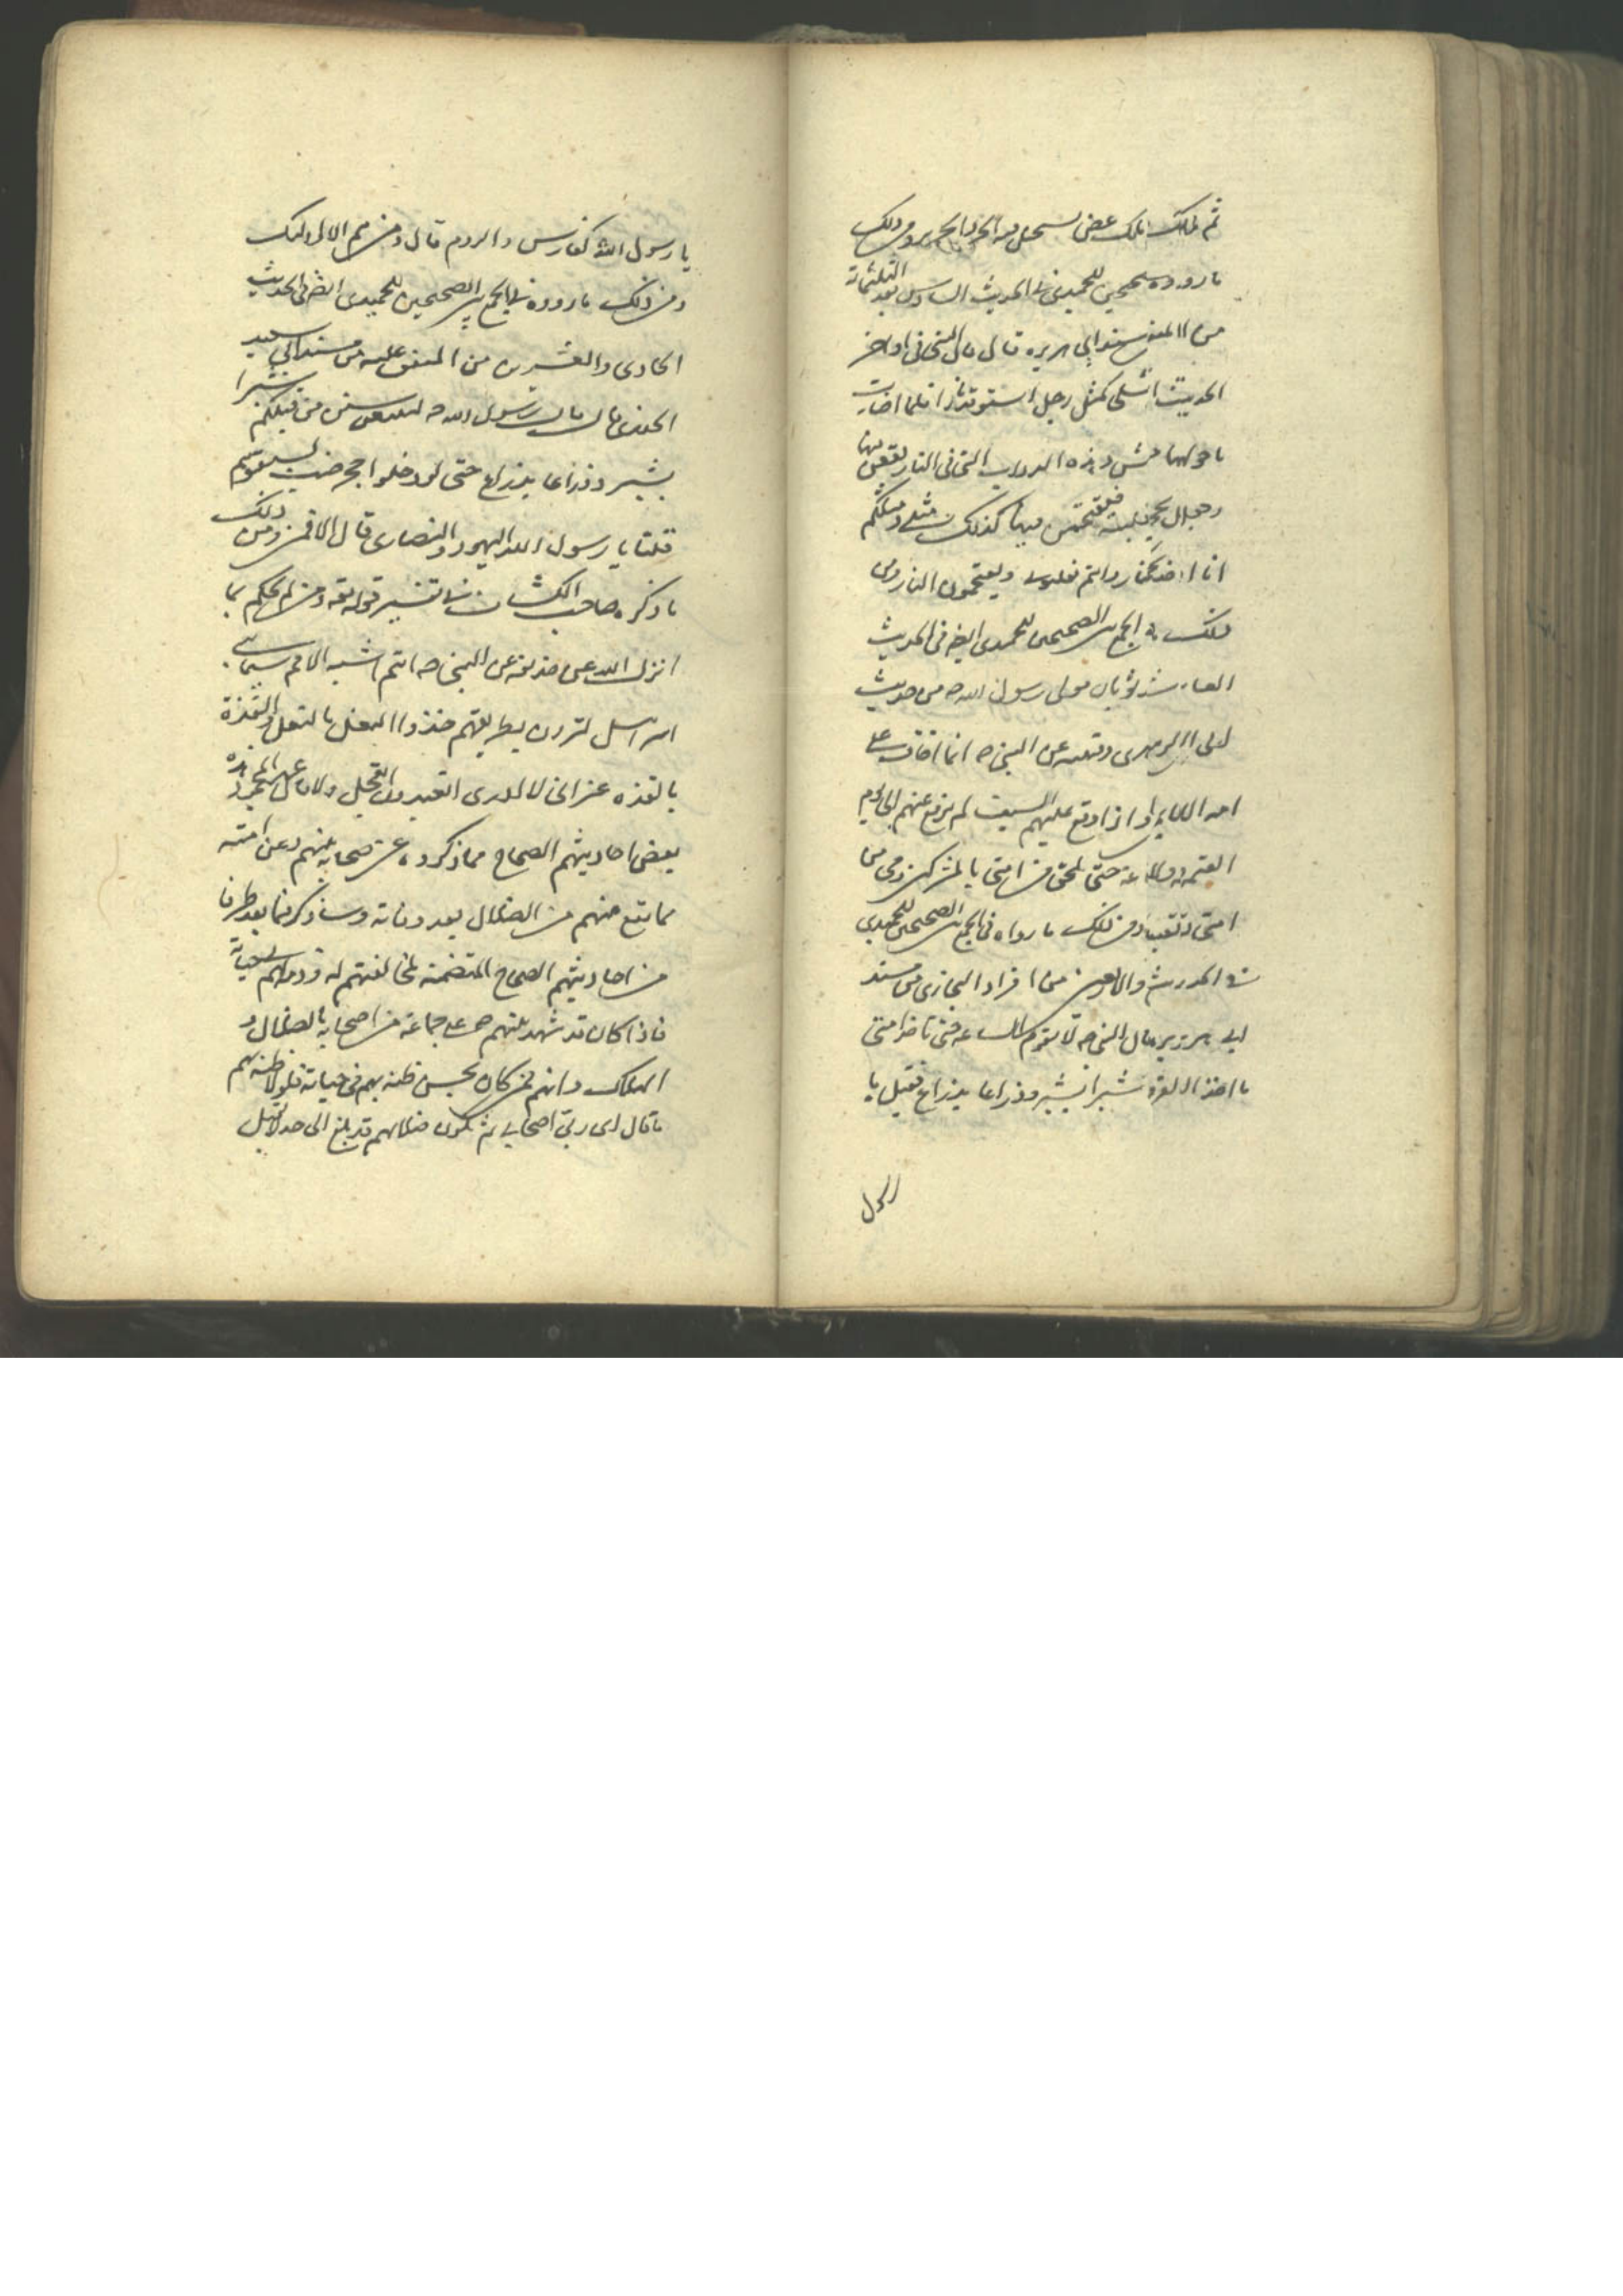 ثم ملك عض يستحل فيه الحر والحرير ومن ذلك
ما رووه للحميدي في الحديث السادس بعد الثلثمائة
من المتفق من مسند ابي هريره قال قال النبي في اواخر
الحديث مثلي كمثل رجل استوقد نارا فلما اضاءت
ما حولها الفراش وهذه الدواب التي في النار يقعن فيها
وجعل يحجزهن فيقتحمن فيها كذلك مثلي ومثلكم
انا اخذ بحجزكم النار وانتم تغلبوني وتقتحمون النار ومن
ذلك في الجمع بين الصحيحين للحميدي ايضا في الحديث
العاشر ثوبان مولى رسول الله ص من حديث
عن النبي ص انما اخاف على
اذا وقع عليهم السيف لم يرفع عنهم الى يوم
القيمه ولا حتى يلحق من امتي بالمشركين وحتى
امتي ومن ذلك ما رواه في الجمع بين الصحيحين للحميدي
في الحديث والاربعين من افراد البخاري من مسند
ابي هريره قال النبي ص لا تقوم الساعة حتى تاخذ امتي
ما اخذ القرون شبرا بشبر وذراعا بذراع فقيل يا
رسول
يا رسول الله كفارس والروم قال ومن هم الا اولئك
ومن ذلك ما رووه في الجمع بين الصحيحين للحميدي ايضا في الحديث
الحادي والعشرين من المتفق عليه من مسند ابي سعيد
الخدري قال قال رسول الله ص لتتبعن سنن من قبلكم شبرا
بشبر وذراعا بذراع حتى لو دخلوا جحر ضب لتبعتموهم
قلنا يا رسول الله اليهود والنصارى قال فمن ومن ذلك
ما ذكره صاحب الكشاف في تفسير قوله تعه ومن لم يحكم بما
انزل الله عن حذيفه عن النبي ص انتم اشبه الامم سيما ببني
اسرائيل لتركبن طريقهم حذوا النعل بالنعل والقذة
بالقذه غير اني لا ادري اتعبدون العجل ام لا هذه
بعض احاديثهم الصحاح مما ذكروه عن صحابة نبيهم وعن امته
مما يقع منهم من الضلال بعد وفاته وساذكر فيما بعد طرفا
من احاديثهم الصحاح المتضمنه لمخالفتهم له في حياته
فاذا كان قد شهد نبيهم ص على جماعة من اصحابه بالضلال و
الهلاك وانهم ممن كان يحسن ظنه بهم في حياته فلولا ظنه بهم
ما قال اي ربي اصحابي ثم يكون ضلالهم قد بلغ الى حد لا يقبل